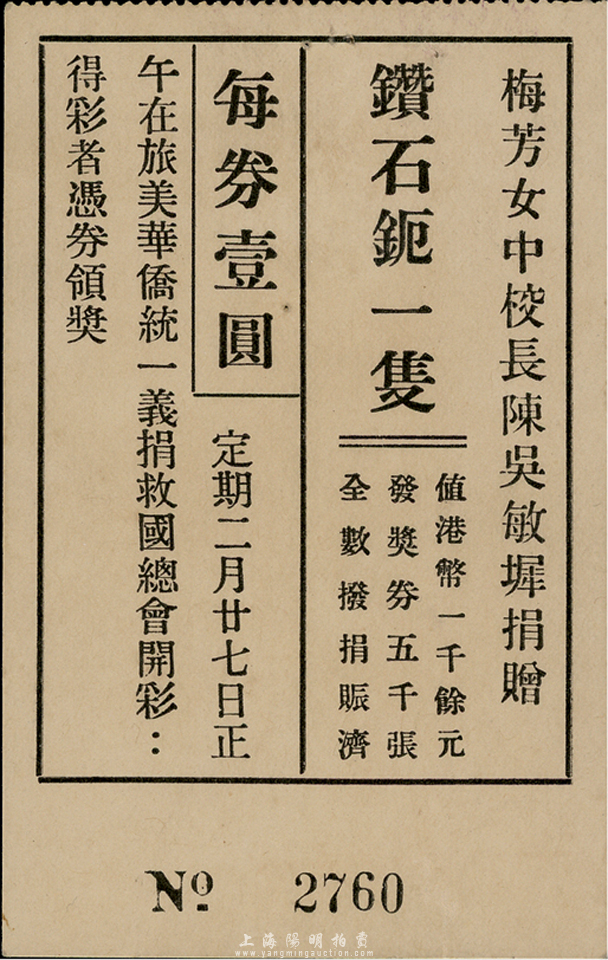 梅芳女中校長陳吳敏墀捐贈
鑽石鈪一隻
值港幣一千餘元
發獎券五千張
全數撥捐賑濟
每券壹圓
定期二月廿七日正
午在旅美華僑統一義捐救國總會開彩：
得彩者憑券領獎
No. 2760
上海陽明拍賣
www.yangmingauction.com